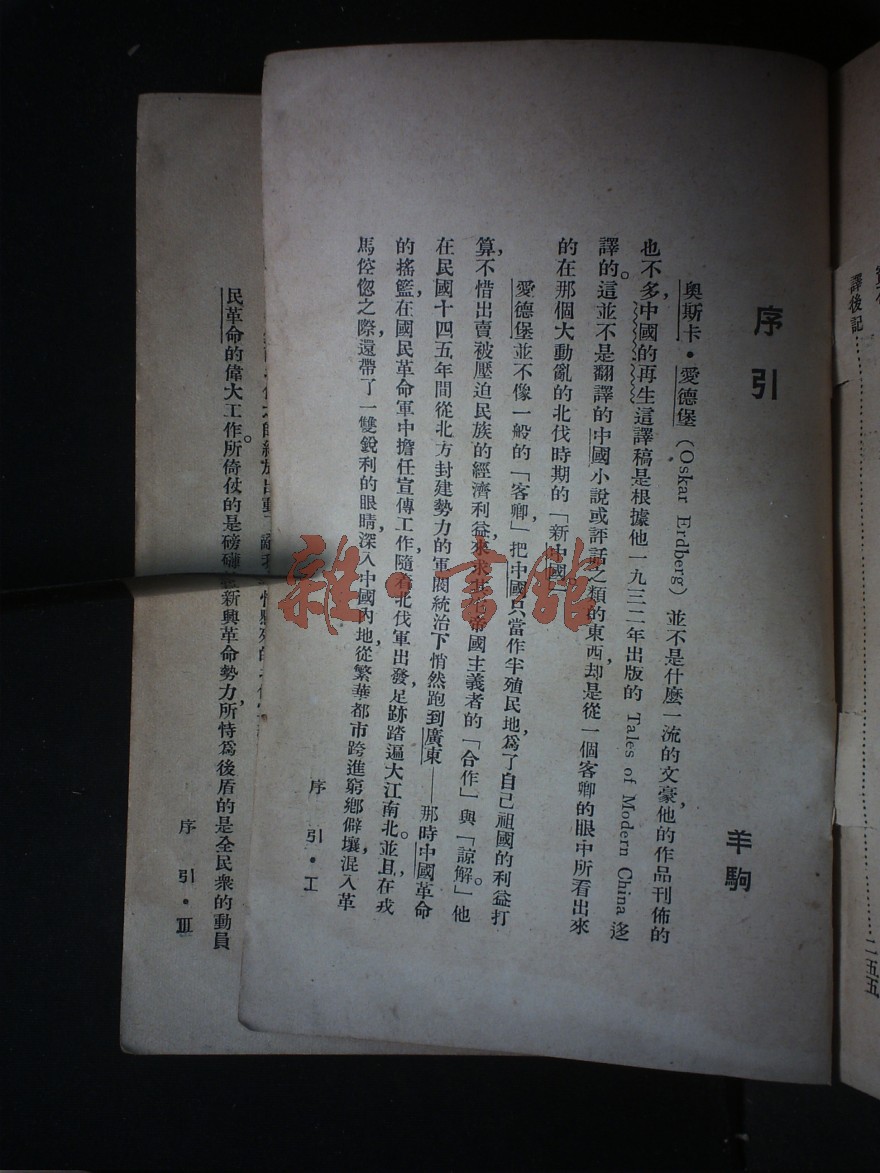 譯後記……………………二五五
序引
羊駒
奧斯卡・愛德堡（Oskar Erdberg）並不是什麼一流的文豪，他的作品刊佈的
也不多，中國的再生這譯稿是根據他一九三二年出版的 Tales of Modern China 迻
譯的。這並不是翻譯的中國小說或評話之類的東西，却是從一個客卿的眼中所看出來
的在那個大動亂的北伐時期的「新中國」。
愛德堡並不像一般的「客卿」，把中國只當作半殖民地，爲了自己祖國的利益打
算，不惜出賣被壓迫民族的經濟利益，來求其他帝國主義者的「合作」與「諒解」。他
在民國十四五年間從北方封建勢力的軍閥統治下悄然跑到廣東——那時中國革命
的搖籃，在國民革命軍中擔任宣傳工作，隨着北伐軍出發，足跡踏遍大江南北。並且在戎
馬倥偬之際，還帶了一雙銳利的眼睛，深入中國內地，從繁華都市跨進窮鄉僻壤，混入革
序引・I
民革命的偉大工作。所倚仗的是磅礴新興革命勢力，所恃爲後盾的是全民衆的動員
序引・III
雜・書館